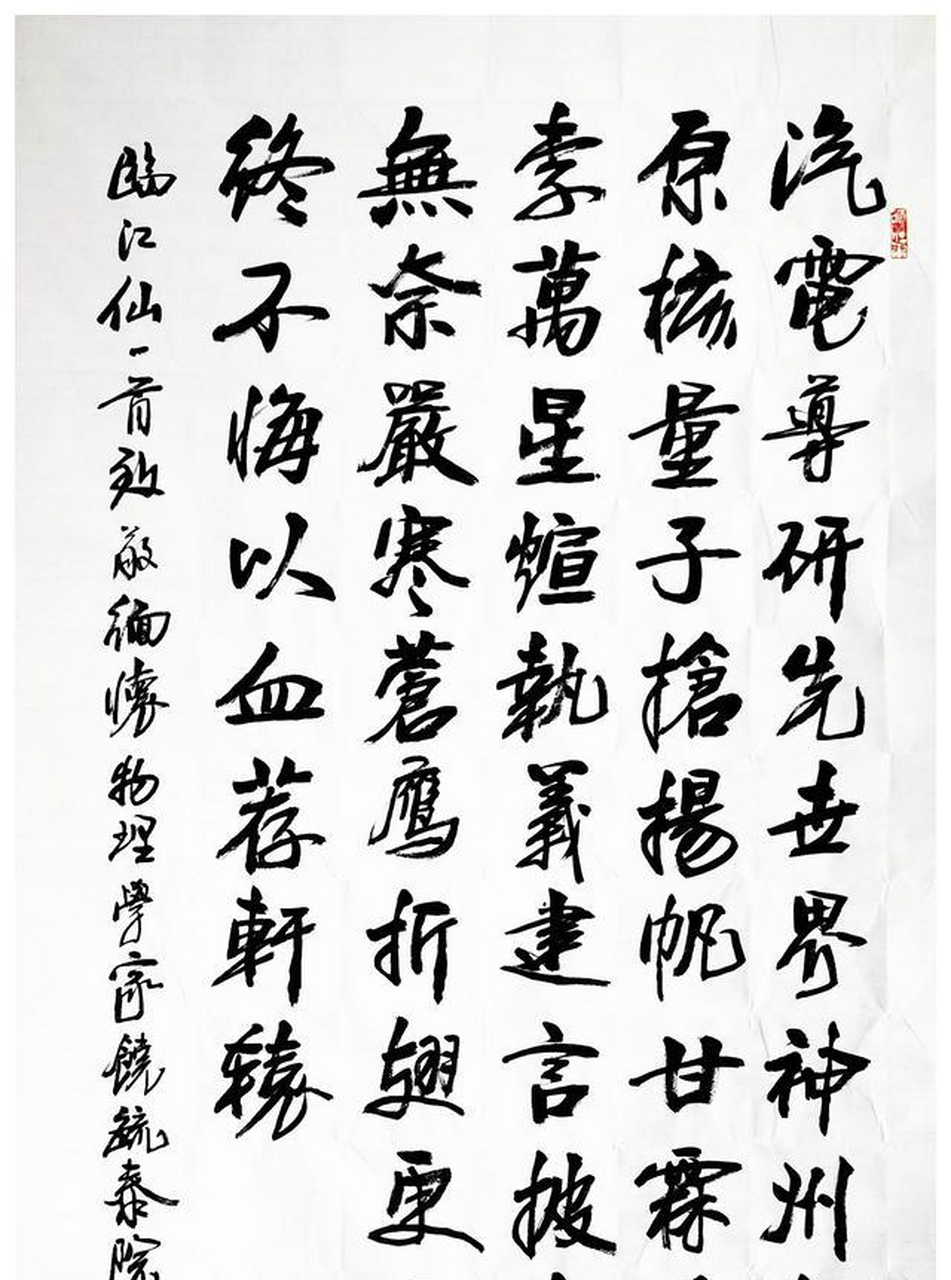 汽電導研先世界神州
原核量子搶揚帆甘霖
素萬星煊執義建言披
無奈嚴寒蒼鷹折翅更
終不悔以血荐軒轅
臨江仙一首致敬緬懷物理學家饒毓泰院